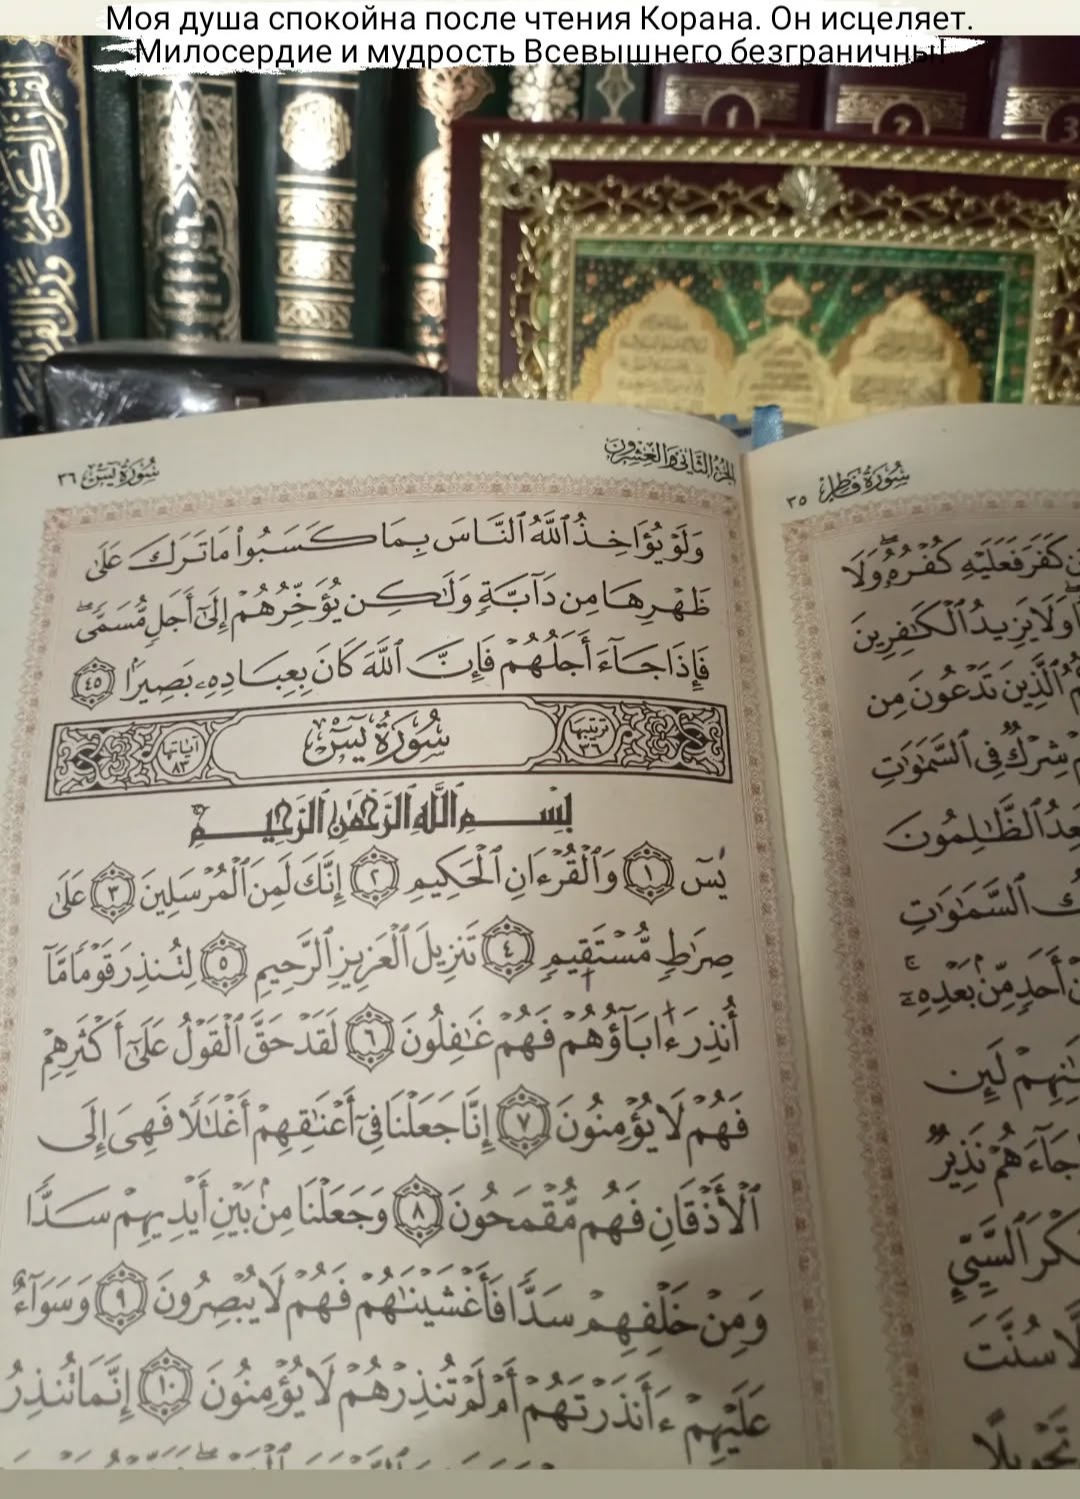 Моя душа спокойна после чтения Корана. Он исцеляет.
Милосердие и мудрость Всевышнего безграничны!
1 2 3
سُورَةُ يسٓ ٣٦
الجزء الثاني والعشرون
سُورَةُ فَاطِرٍ ٣٥
وَلَوْ يُؤَاخِذُ ٱللَّهُ ٱلنَّاسَ بِمَا كَسَبُوا۟ مَا تَرَكَ عَلَىٰ
ظَهْرِهَا مِن دَآبَّةٍ وَلَٰكِن يُؤَخِّرُهُمْ إِلَىٰٓ أَجَلٍ مُّسَمًّى ۖ
فَإِذَا جَآءَ أَجَلُهُمْ فَإِنَّ ٱللَّهَ كَانَ بِعِبَادِهِۦ بَصِيرًۢا ٤٥
ترتيبها ٣٦ سُورَةُ يسٓ آياتها ٨٣
بِسْمِ ٱللَّهِ ٱلرَّحْمَٰنِ ٱلرَّحِيمِ
يسٓ ١ وَٱلْقُرْءَانِ ٱلْحَكِيمِ ٢ إِنَّكَ لَمِنَ ٱلْمُرْسَلِينَ ٣ عَلَىٰ
صِرَٰطٍ مُّسْتَقِيمٍ ٤ تَنزِيلَ ٱلْعَزِيزِ ٱلرَّحِيمِ ٥ لِتُنذِرَ قَوْمًا مَّآ
أُنذِرَ ءَابَآؤُهُمْ فَهُمْ غَٰفِلُونَ ٦ لَقَدْ حَقَّ ٱلْقَوْلُ عَلَىٰٓ أَكْثَرِهِمْ
فَهُمْ لَا يُؤْمِنُونَ ٧ إِنَّا جَعَلْنَا فِىٓ أَعْنَٰقِهِمْ أَغْلَٰلًا فَهِىَ إِلَى
ٱلْأَذْقَانِ فَهُم مُّقْمَحُونَ ٨ وَجَعَلْنَا مِنۢ بَيْنِ أَيْدِيهِمْ سَدًّا
وَمِنْ خَلْفِهِمْ سَدًّا فَأَغْشَيْنَٰهُمْ فَهُمْ لَا يُبْصِرُونَ ٩ وَسَوَآءٌ
عَلَيْهِمْ ءَأَنذَرْتَهُمْ أَمْ لَمْ تُنذِرْهُمْ لَا يُؤْمِنُونَ ١٠ إِنَّمَا تُنذِرُ
كَفَرَ فَعَلَيْهِ كُفْرُهُۥ ۖ وَلَا
وَلَا يَزِيدُ ٱلْكَٰفِرِينَ
ٱلَّذِينَ تَدْعُونَ مِن
شِرْكٌ فِى ٱلسَّمَٰوَٰتِ
ٱلظَّٰلِمُونَ
ٱلسَّمَٰوَٰتِ
أَحَدٍ مِّنۢ بَعْدِهِۦٓ ۚ
لَئِن
جَآءَهُمْ نَذِيرٌ
ٱلسَّيِّئِ
سُنَّتَ
تَحْوِيلًا